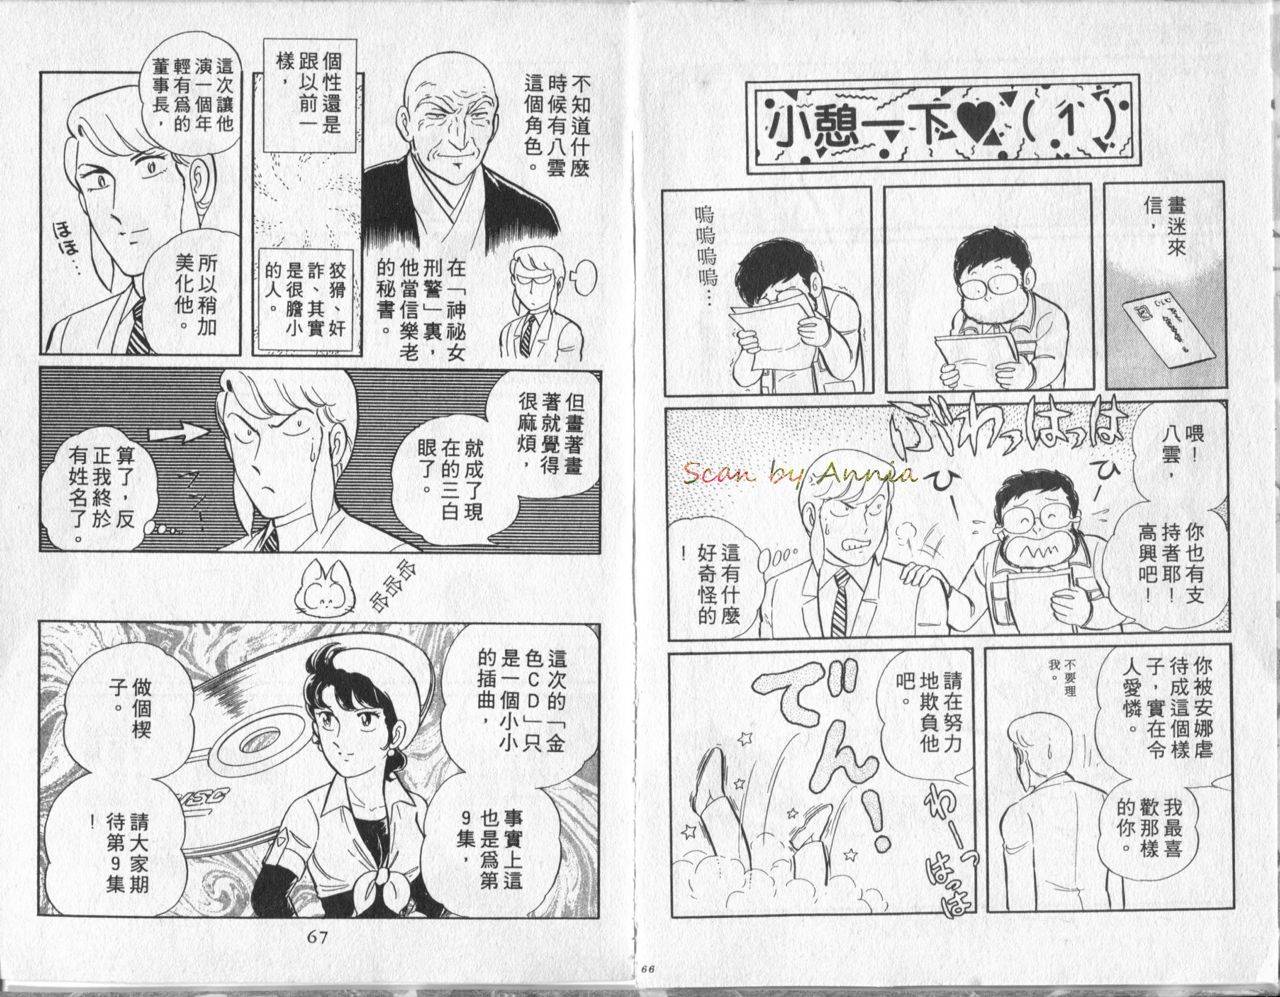 小憩一下♥(1)
畫迷來
信，
嗚嗚嗚嗚…
ぶわっはっは
ひー
ひー
喂！
八雲，
你也有支
持者耶！
高興吧！
這有什麼
好奇怪的
！
Scan by Annia
你被安娜虐
待成這個樣
子，實在令
人愛憐。
我最喜
歡那樣
的你。
不要理
我。
請在努力
地欺負他
吧。
でん！
わーっはっはっは
66
不知道什麼
時候有八雲
這個角色。
在「神祕女
刑警」裏，
他當信樂老
的秘書。
個性還是
跟以前一
樣，
狡猾、奸
詐、其實
是很膽小
的人。
這次讓他
演一個年
輕有為的
董事長，
所以稍加
美化他。
ほほ…
但畫著畫
著就覺得
很麻煩，
就成了現
在的三白
眼了。
算了，反
正我終於
有姓名了。
哈哈哈
這次的「金
色CD」只
是一個小小
的插曲，
事實上這
也是為第
9集，
做個楔
子。
請大家期
待第9集
！
67